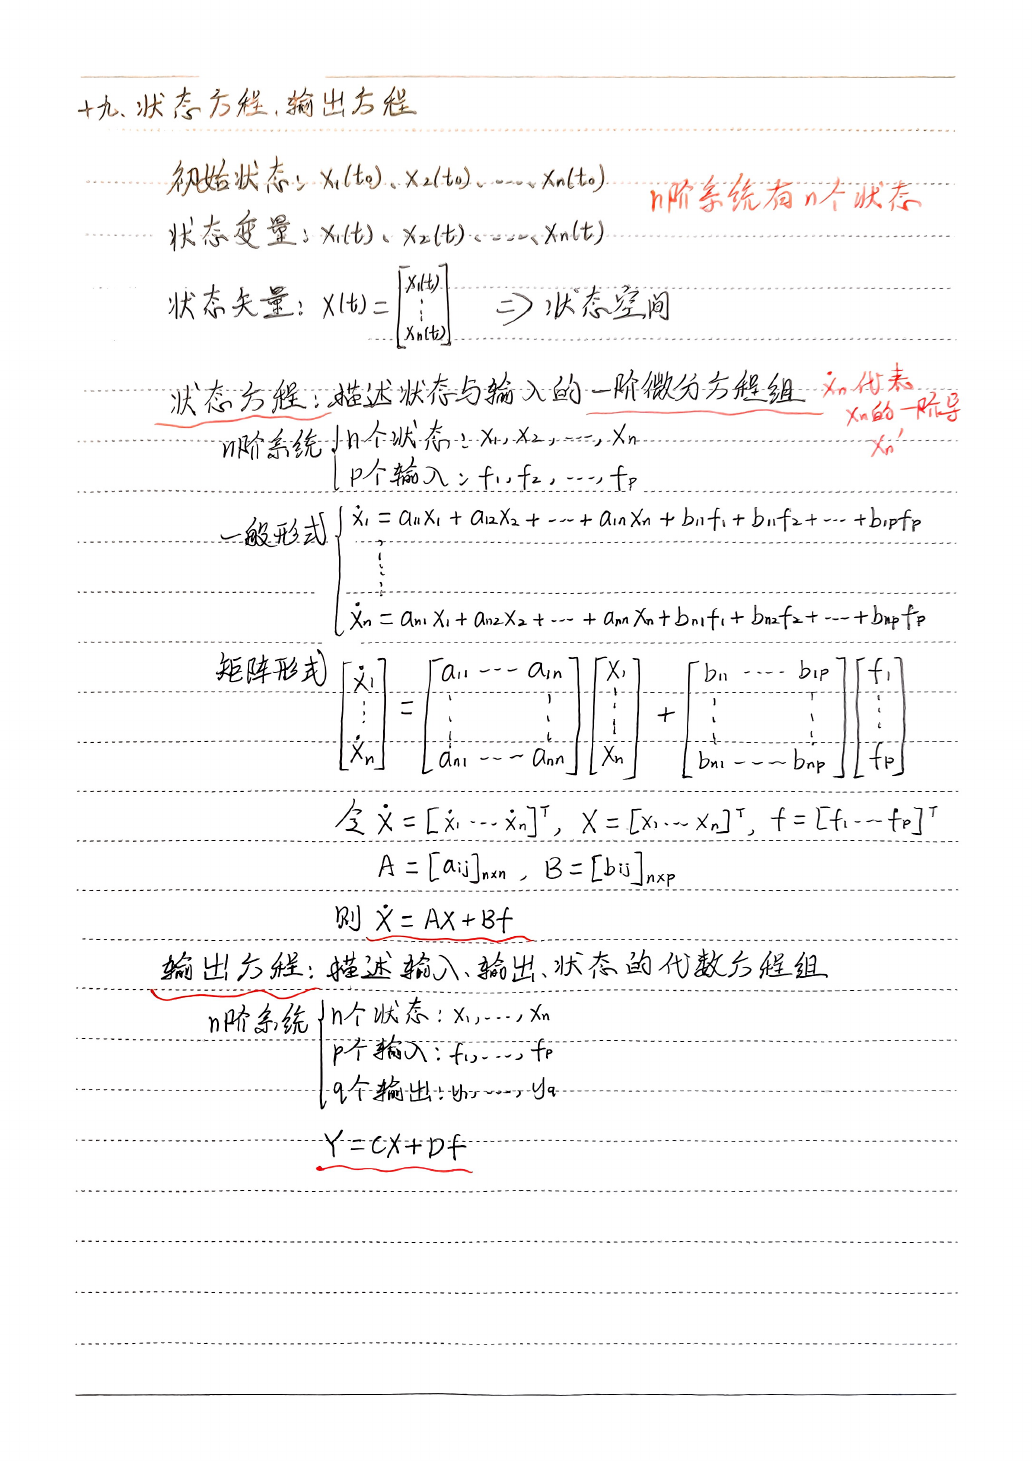 十九、状态方程、输出方程
初始状态：x₁(t₀)、x₂(t₀)、……、xₙ(t₀)
n阶系统有n个状态
状态变量：x₁(t)、x₂(t)、……、xₙ(t)
状态矢量：x(t) = [x₁(t) ⋮ xₙ(t)] ⇒ 状态空间
状态方程：描述状态与输入的一阶微分方程组
ẋₙ代表
xₙ的一阶导
xₙ′
n阶系统 { n个状态：x₁, x₂, ……, xₙ
p个输入：f₁, f₂, ……, fₚ
一般形式 { ẋ₁ = a₁₁x₁ + a₁₂x₂ + … + a₁ₙxₙ + b₁₁f₁ + b₁₁f₂ + … + b₁ₚfₚ
⋮
ẋₙ = aₙ₁x₁ + aₙ₂x₂ + … + aₙₙxₙ + bₙ₁f₁ + bₙ₂f₂ + … + bₙₚfₚ
矩阵形式 [ẋ₁ ⋮ ẋₙ] = [a₁₁ … a₁ₙ ⋮ ⋮ aₙ₁ … aₙₙ] [x₁ ⋮ xₙ] + [b₁₁ … b₁ₚ ⋮ ⋮ bₙ₁ … bₙₚ] [f₁ ⋮ fₚ]
令 Ẋ = [ẋ₁ … ẋₙ]ᵀ, X = [x₁ … xₙ]ᵀ, f = [f₁ … fₚ]ᵀ
A = [aij]n×n , B = [bij]n×p
则 Ẋ = AX + Bf
输出方程：描述输入、输出、状态的代数方程组
n阶系统 { n个状态：x₁, …, xₙ
p个输入：f₁, …, fₚ
q个输出：y₁, …, yq
Y = CX + Df